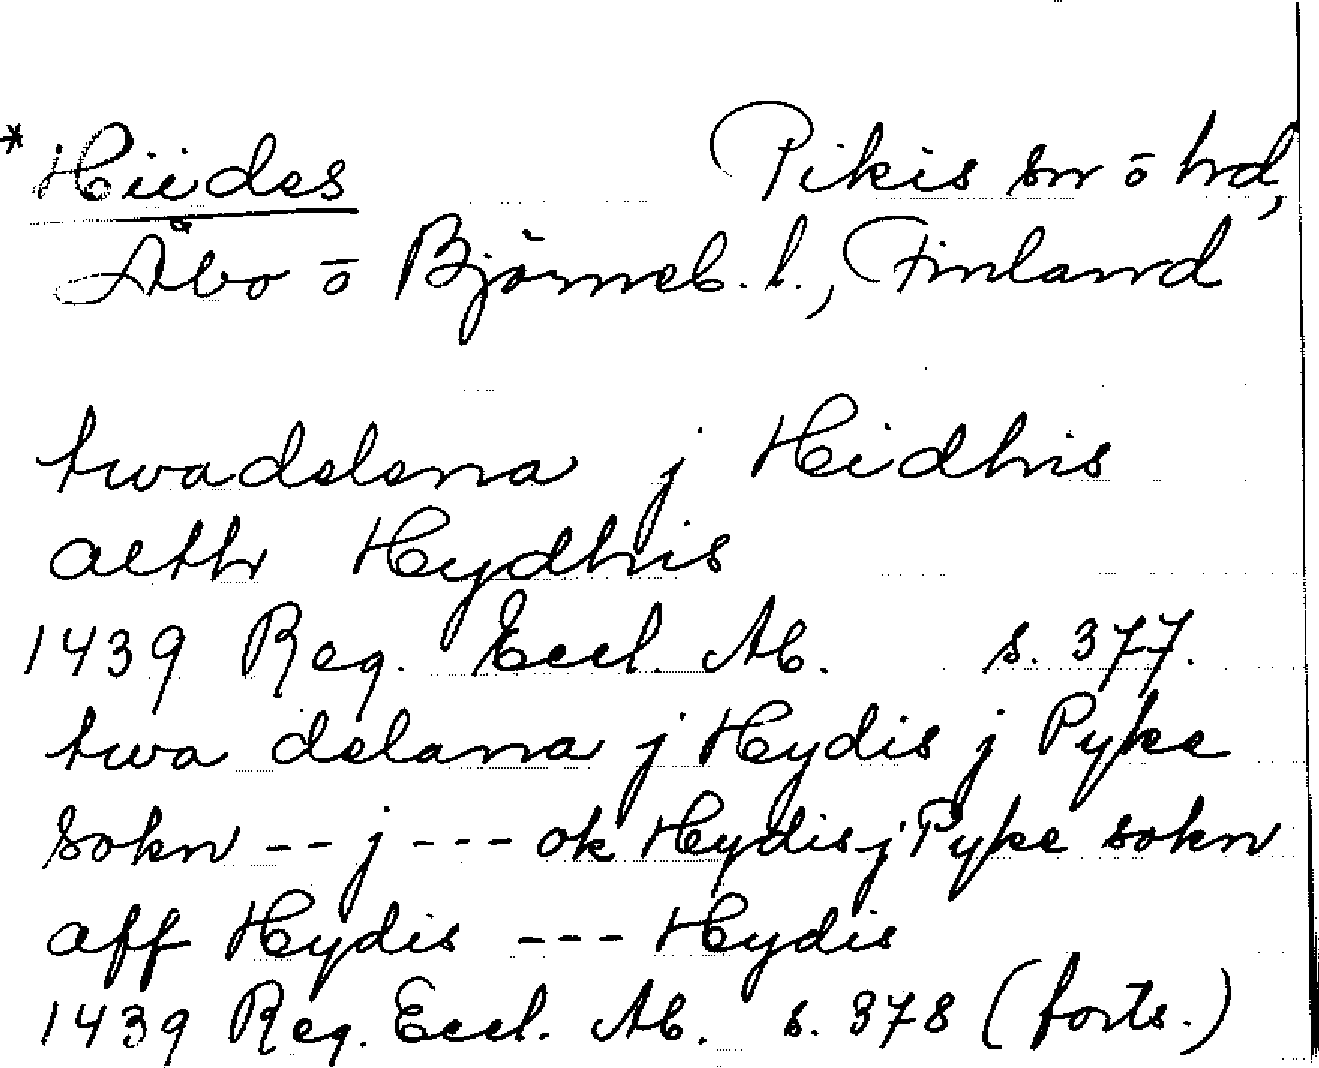 *Hiides Pikis sn o hd,
Åbo o Björneb. l., Finland
twadelena j Heidhis
aeth Hydhis
1439 Reg. Eccl. Ab. s. 377.
twa delana j Hydis j Pyke
sokn -- j --- ok Hydis j Pyke sokn
aff Hydis --- Hydis
1439 Reg. Eccl. Ab. s. 378 (forts.)